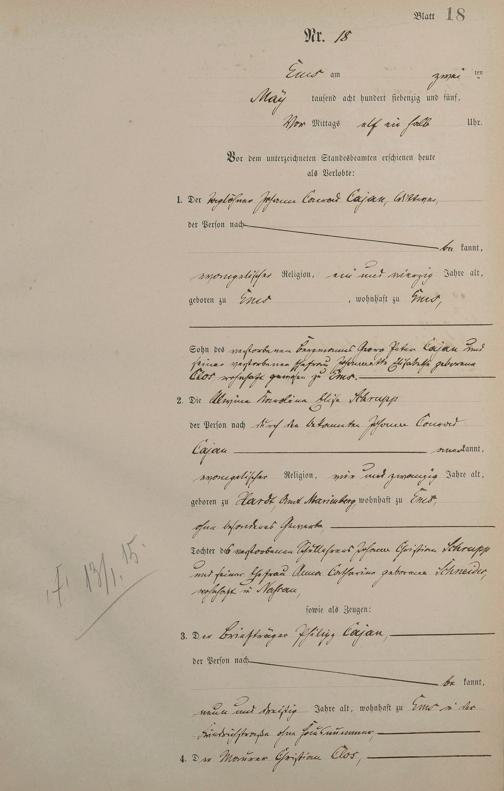 Blatt 18
Nr. 18
Ems am zwei ten
May tausend acht hundert siebenzig und fünf,
Vor Mittags elf ein halb Uhr.
Vor dem unterzeichneten Standesbeamten erschienen heute
als Verlobte:
1. Der Taglöhner Johann Conrad Cajan, Wittwer,
der Person nach
be kannt,
evangelischer Religion, ein und vierzig Jahre alt,
geboren zu Ems, wohnhaft zu Ems,
Sohn des verstorbenen Bergmanns Georg Peter Cajan und
seiner verstorbenen Ehefrau Elisabetha geborene
Clos wohnhaft gewesen zu Ems.
2. Die Alwine Karoline Elise Schrupp
der Person nach durch den bekannten Johann Conrad
Cajan kannt,
evangelischer Religion, vier und zwanzig Jahre alt,
geboren zu Hardt, Amt Marienberg wohnhaft zu Ems,
ohne besonderes Gewerbe
Tochter des verstorbenen Schullehrers Johann Christian Schrupp
und seiner Ehefrau Anna Catharina geborene Schneider,
wohnhaft in Nassau,
sowie als Zeugen:
3. Der Briefträger Philipp Cajan,
der Person nach
be kannt,
neun und dreißig Jahre alt, wohnhaft zu Ems in der
Friedrichstraße ohne Hausnummer,
4. Der Maurer Christian Clos,
13/1. 15.